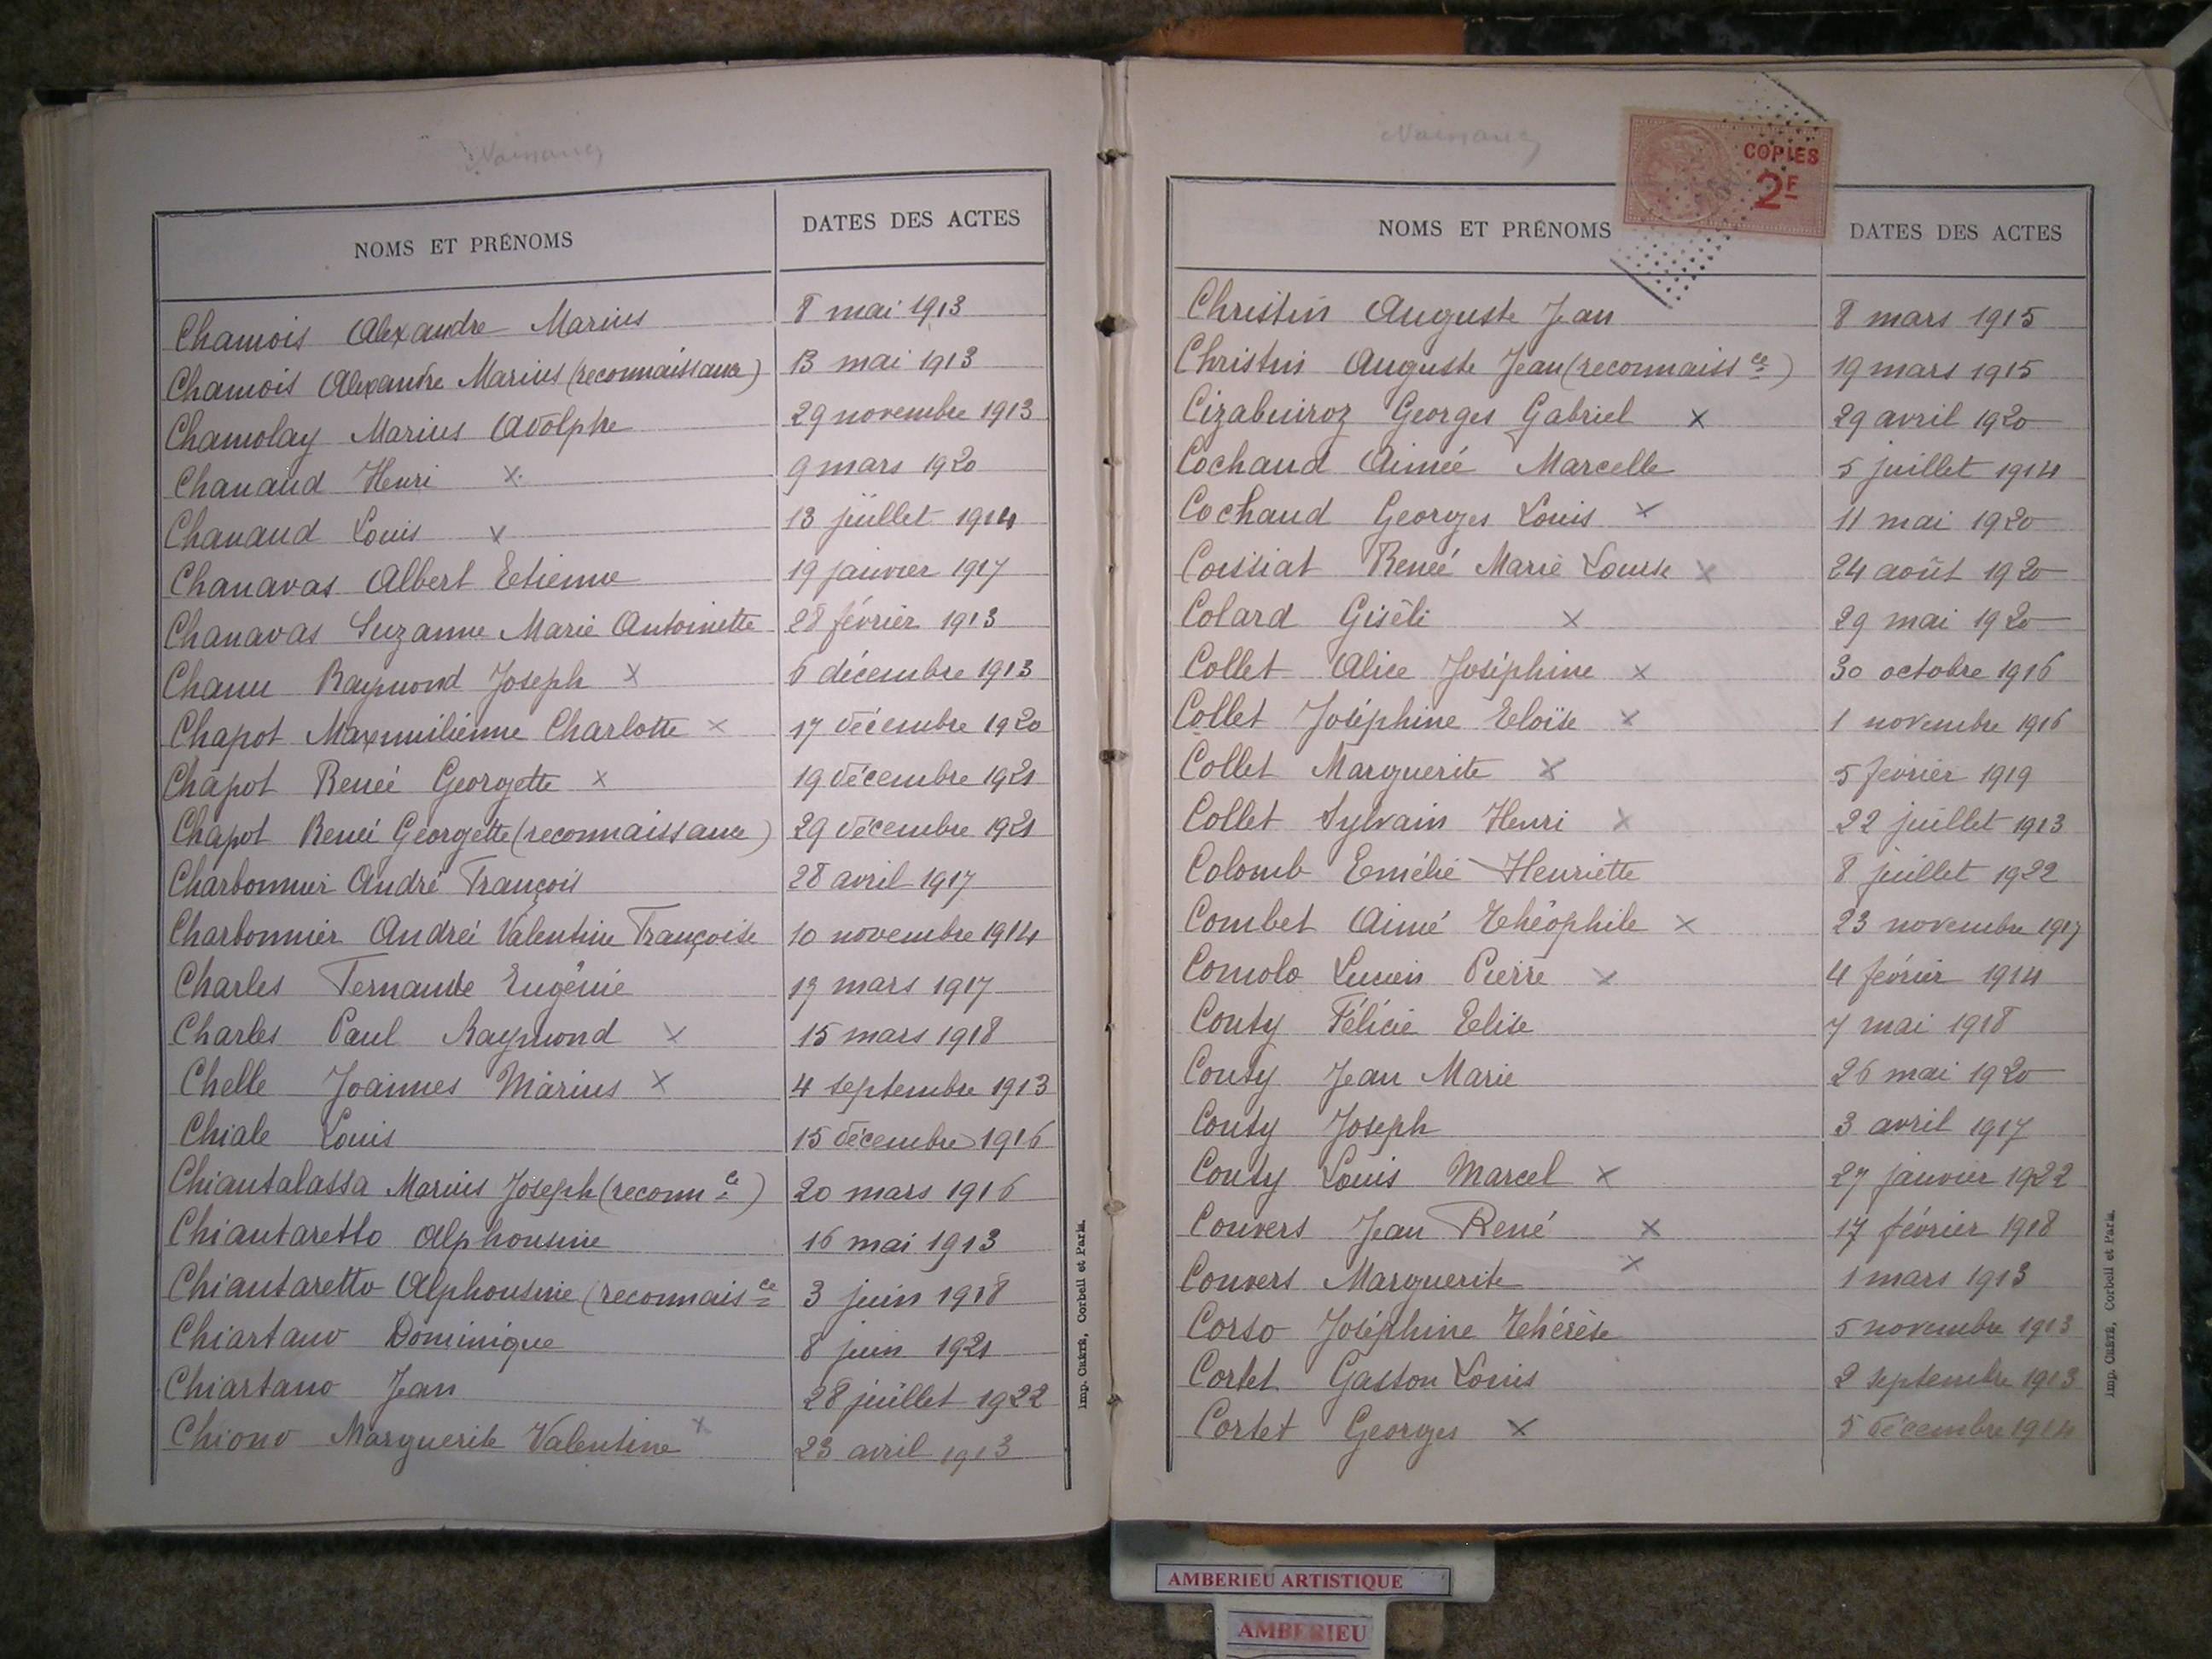 Naissances
NOMS ET PRÉNOMS DATES DES ACTES
Chamois Alexandre Marius 8 mai 1913
Chamois Alexandre Marius (reconnaissance) 13 mai 1913
Chamolay Marius Adolphe 29 novembre 1913
Chanaud Henri x 9 mars 1920
Chanaud Louis x 13 juillet 1914
Chanavas Albert Etienne 19 janvier 1917
Chanavas Suzanne Marie Antoinette 28 février 1913
Chanu Raymond Joseph x 6 décembre 1913
Chapot Maxmilienne Charlotte x 17 décembre 1920
Chapot Renée Georgette x 19 décembre 1921
Chapot Renée Georgette (reconnaissance) 29 décembre 1921
Charbonnier André François 28 avril 1917
Charbonnier Andrée Valentine Françoise 10 novembre 1914
Charles Fernande Eugénie mars 1917
Charles Paul Raymond x 15 mars 1918
Chelle Joannes Marius x 4 septembre 1913
Chiale Louis 15 décembre 1916
Chiantalassa Marius Joseph (reconnce) 20 mars 1916
Chiantaretto Alphonsine 16 mai 1913
Chiantaretto Alphonsine (reconnaisce 3 juin 1918
Chiartano Dominique 8 juin 1921
Chiartano Jean 28 juillet 1922
Chiono Marguerite Valentine x 23 avril 1913
Imp. CRÉTÉ, Corbeil et Paris.
Naissances
COPIES
2F
NOMS ET PRÉNOMS DATES DES ACTES
Christin Auguste Jean 8 mars 1915
Christin Auguste Jean (reconnaissce) 19 mars 1915
Cizabuiroz Georges Gabriel x 29 avril 1920
Cochaud Aimée Marcelle 5 juillet 1914
Cochaud Georges Louis x 11 mai 1920
Coissiat Renée Marie Louise x 24 août 1920
Colard Gisèle x 29 mai 1920
Collet Alice Joséphine x 30 octobre 1916
Collet Joséphine Eloïse x 1 novembre 1916
Collet Marguerite x 5 février 1919
Collet Sylvain Henri x 22 juillet 1913
Colomb Emélie Henriette 8 juillet 1922
Combet Aimé Théophile x 23 novembre 1917
Comolo Lucien Pierre x 4 février 1914
Conty Félicie Elise 7 mai 1918
Conty Jean Marie 26 mai 1920
Conty Joseph 3 avril 1917
Conty Louis Marcel x 27 janvier 1922
Convers Jean René x 17 février 1918
Convers Marguerite x 1 mars 1913
Corso Joséphine Thérèse 5 novembre 1913
Cortet Gaston Louis 2 septembre 1913
Cortet Georges x 5 décembre 1914
Imp. CRÉTÉ, Corbeil et Paris.
AMBERIEU ARTISTIQUE
AMBERIEU